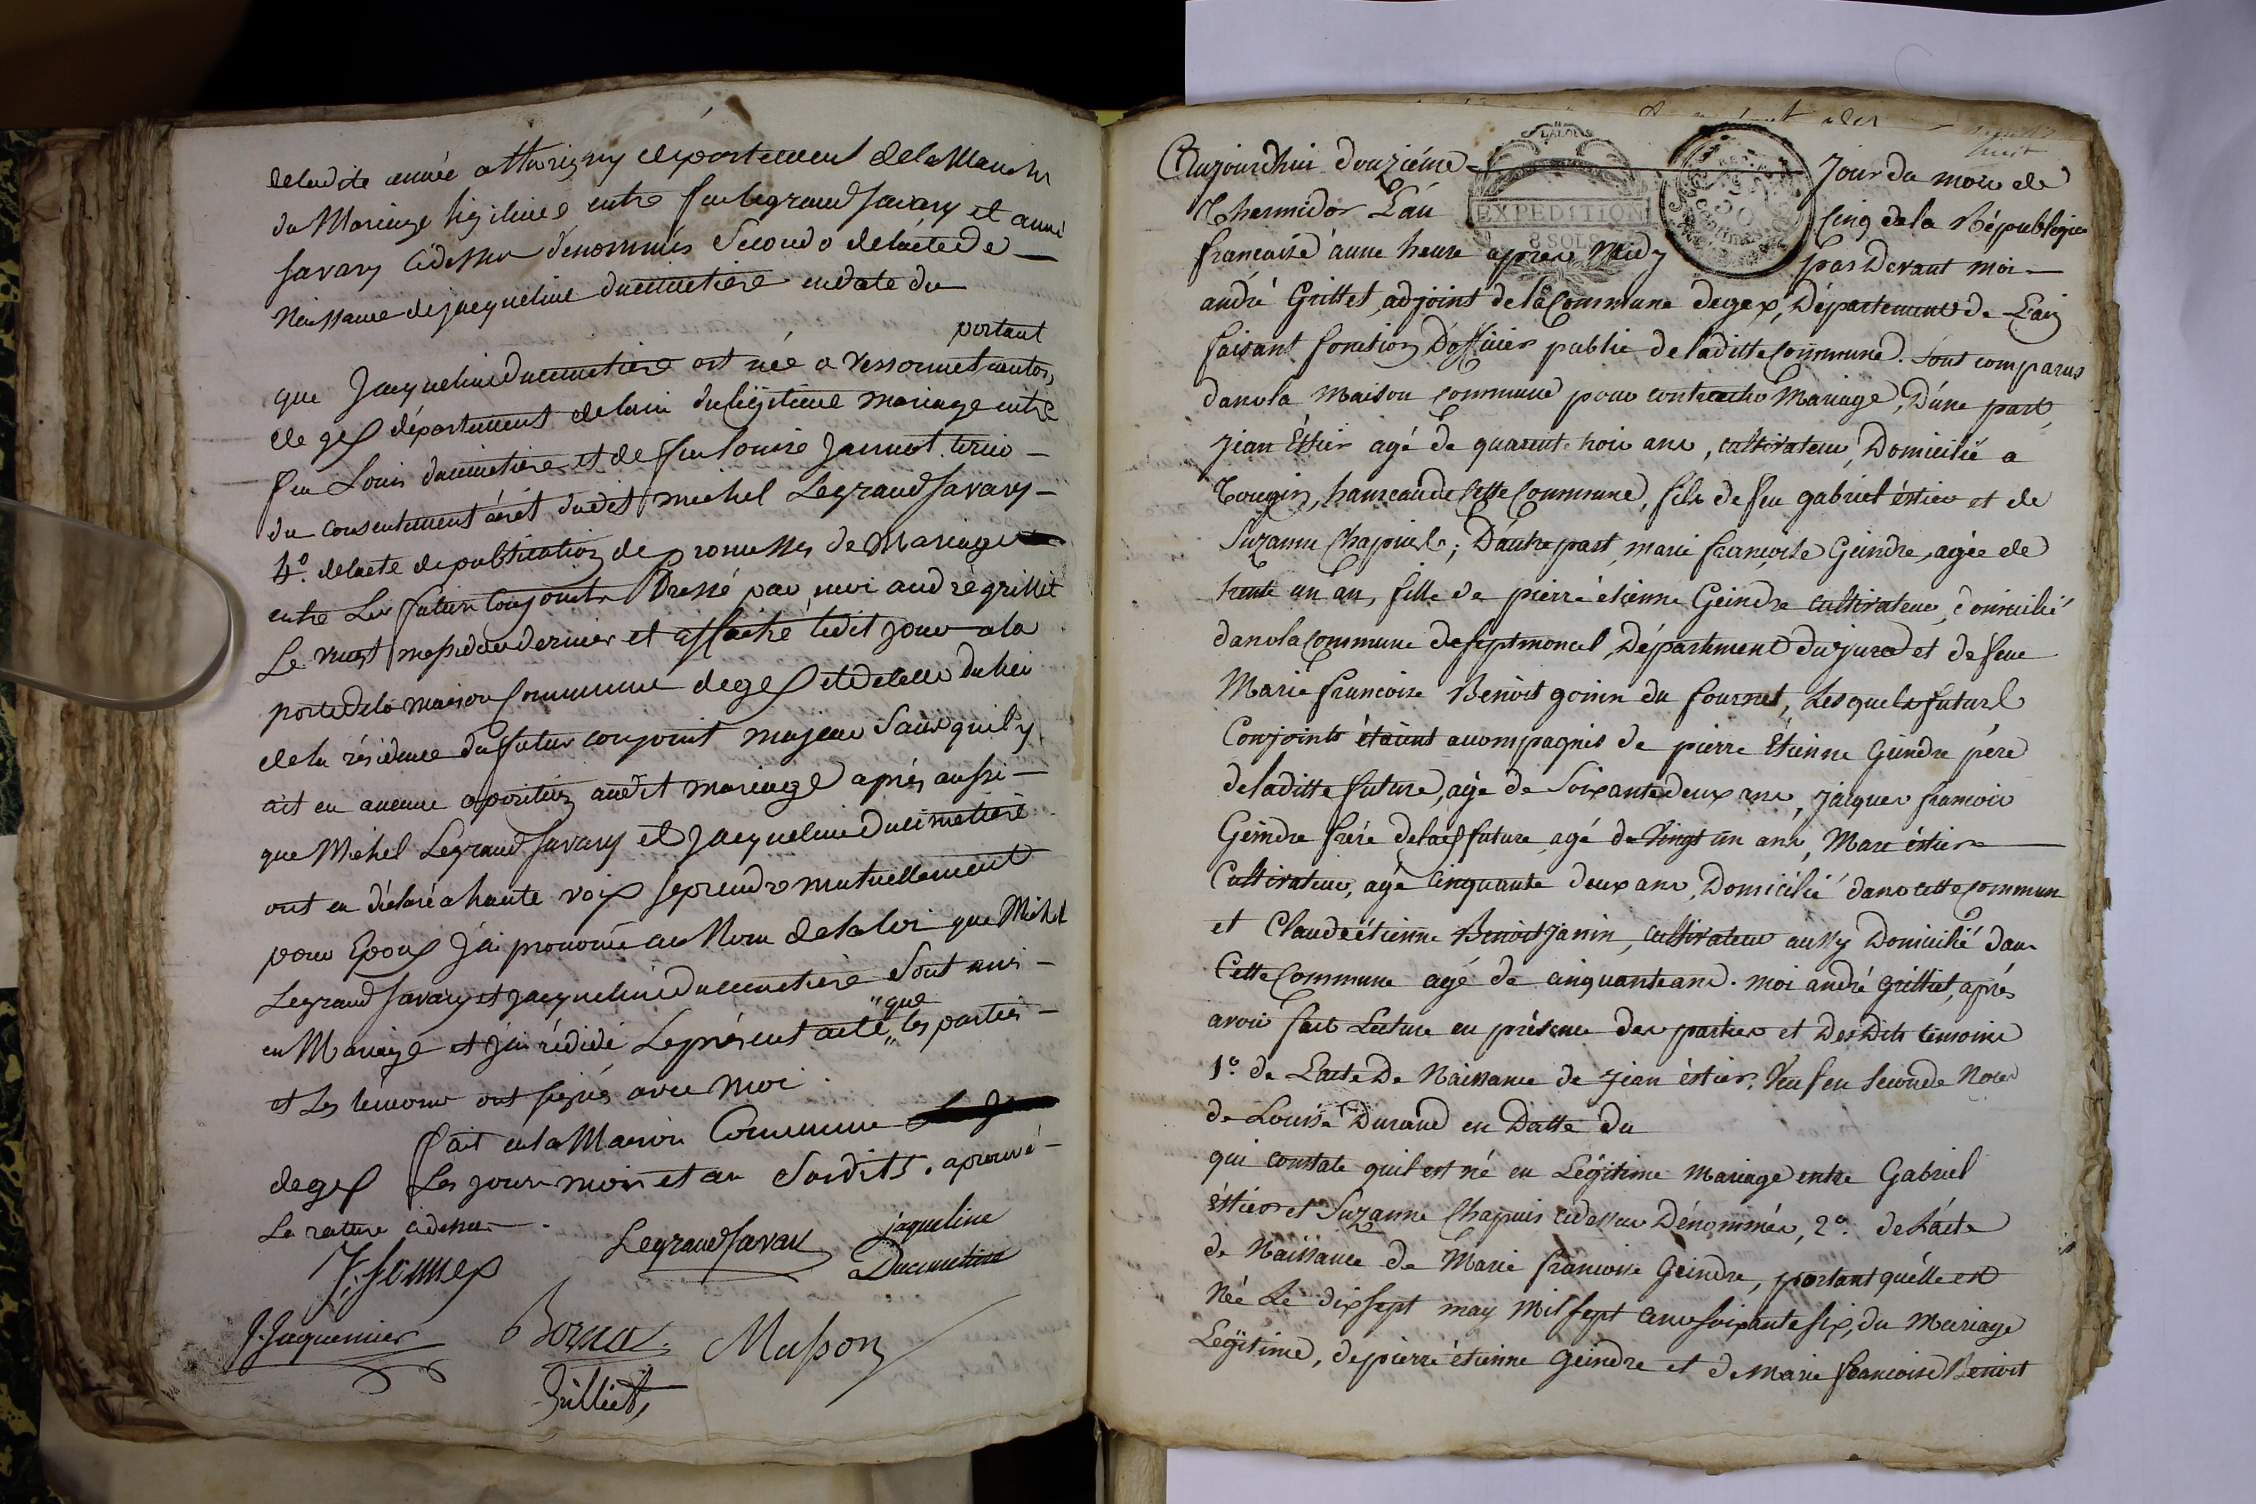 deladite année a thorigny département dela Manche
du Mariage légitime entre feu legrand Savary et anne
Savary cidessus dénommés Secondo delácte de
Naissance de jacqueline ducimetiere en date du
portant
que Jacqueline ducimetiere est née a
de gex département delain du légitime mariage entre
feu Louis ducimetiere et de feu louise Jannot. tertio
du consentement dudit michel Legrand Savary
4º. delacte de publication de Promesses de Mariage
entre Les futurs Conjoints Dressé par moi andre grilliet
Le vingt messidor dernier et affiché ledit jour a la
porte dela maison Commune de gex et de celle du lieu
de la résidence du futur conjoint majeur Sans quil y
ait eu aucune oposition audit mariage après aussi
que Michel Legrand Savary et Jacqueline Ducimetiere
ont eu déclaré a haute voix se prendre mutuellement
pour Epoux J'ai prononcé au Nom de la loi que Michel
Legrand Savary et jacqueline Ducimetiere Sont unis
"que
en Mariage et j'ai rédidé Le présent acte "les parties
et Les témoins ont signés avec moi
fait en la Maison Commune
de gex Les jour mois et an Susdits. aprouvé
La rature cidessus.
Legrand Savary
jaqueline
Ducimetiere
J. Jaquemier
Borsat
Masson
Grilliet
Aujourdhui douziéme Jour du mois de
EXPEDITION
8 SOLS
50
Centimes
Thermidor L'an Cinq dela République
francaise à une heure aprés Midy par Devant moi
andré Grilliet, adjoint dela Commune degex, Département de Lain
faisant fonction D'officier public deladitte Commune. Sont comparus
dans la Maison commune pour contracter Mariage, D'une part,
Jean Estier agé de quarente trois ans, cultivateur, Domicilié a
Tougin, hameau de Cette Commune, fils de feu gabriel éstier et de
Suzanne Chapuis; D'autre part, marie francoise Geindre, agée de
trente un an, fille de pierre étienne Geindre cultivateur, domicilié
dans la Commune de septmoncel, Département du jura et de feue
Marie francoise Benoit gonin du fournet, Lesquels futurs
Conjoints étaient accompagnés de pierre Etienne Geindre père
deladitte future, agé de Soixante deux ans, Jacques francois
Geindre frére delad future agé de Vingt un ans, Marc éstier
Cultivateur, agé Cinquante deux ans, Domicilié dans cette Commune
et Claude étienne Benoit janin, cultivateur aussy Domicilié dans
Cette Commune agé de cinquante ans. moi andré Grilliet, aprés
avoir fait Lecture en présence des parties et Des Dits témoins
1º. de L'acte De Naissance de Jean éstier, Veuf en Seconde Noces
de Louise Durand en Datte du
qui constate quil est né en Légitime Mariage entre Gabriel
éstier et Suzanne Chapuis cidessus Dénommés, 2º. de L'ácte
de Naissance de Marie francoise Geindre, portant qu'élle est
Née Le dix sept may Mil sept cent soixante six, du Mariage
Légitime, de pierre étienne Geindre et de Marie francoise Benoit